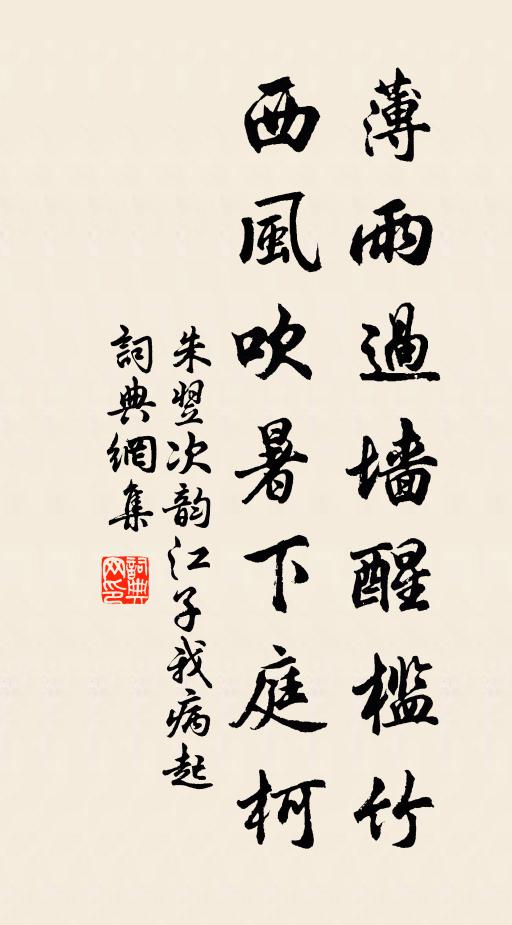 薄雨過墙醒檻竹
西風吹暑下庭柯
朱翌次韵江子我病起
詞典網集
詞典网印